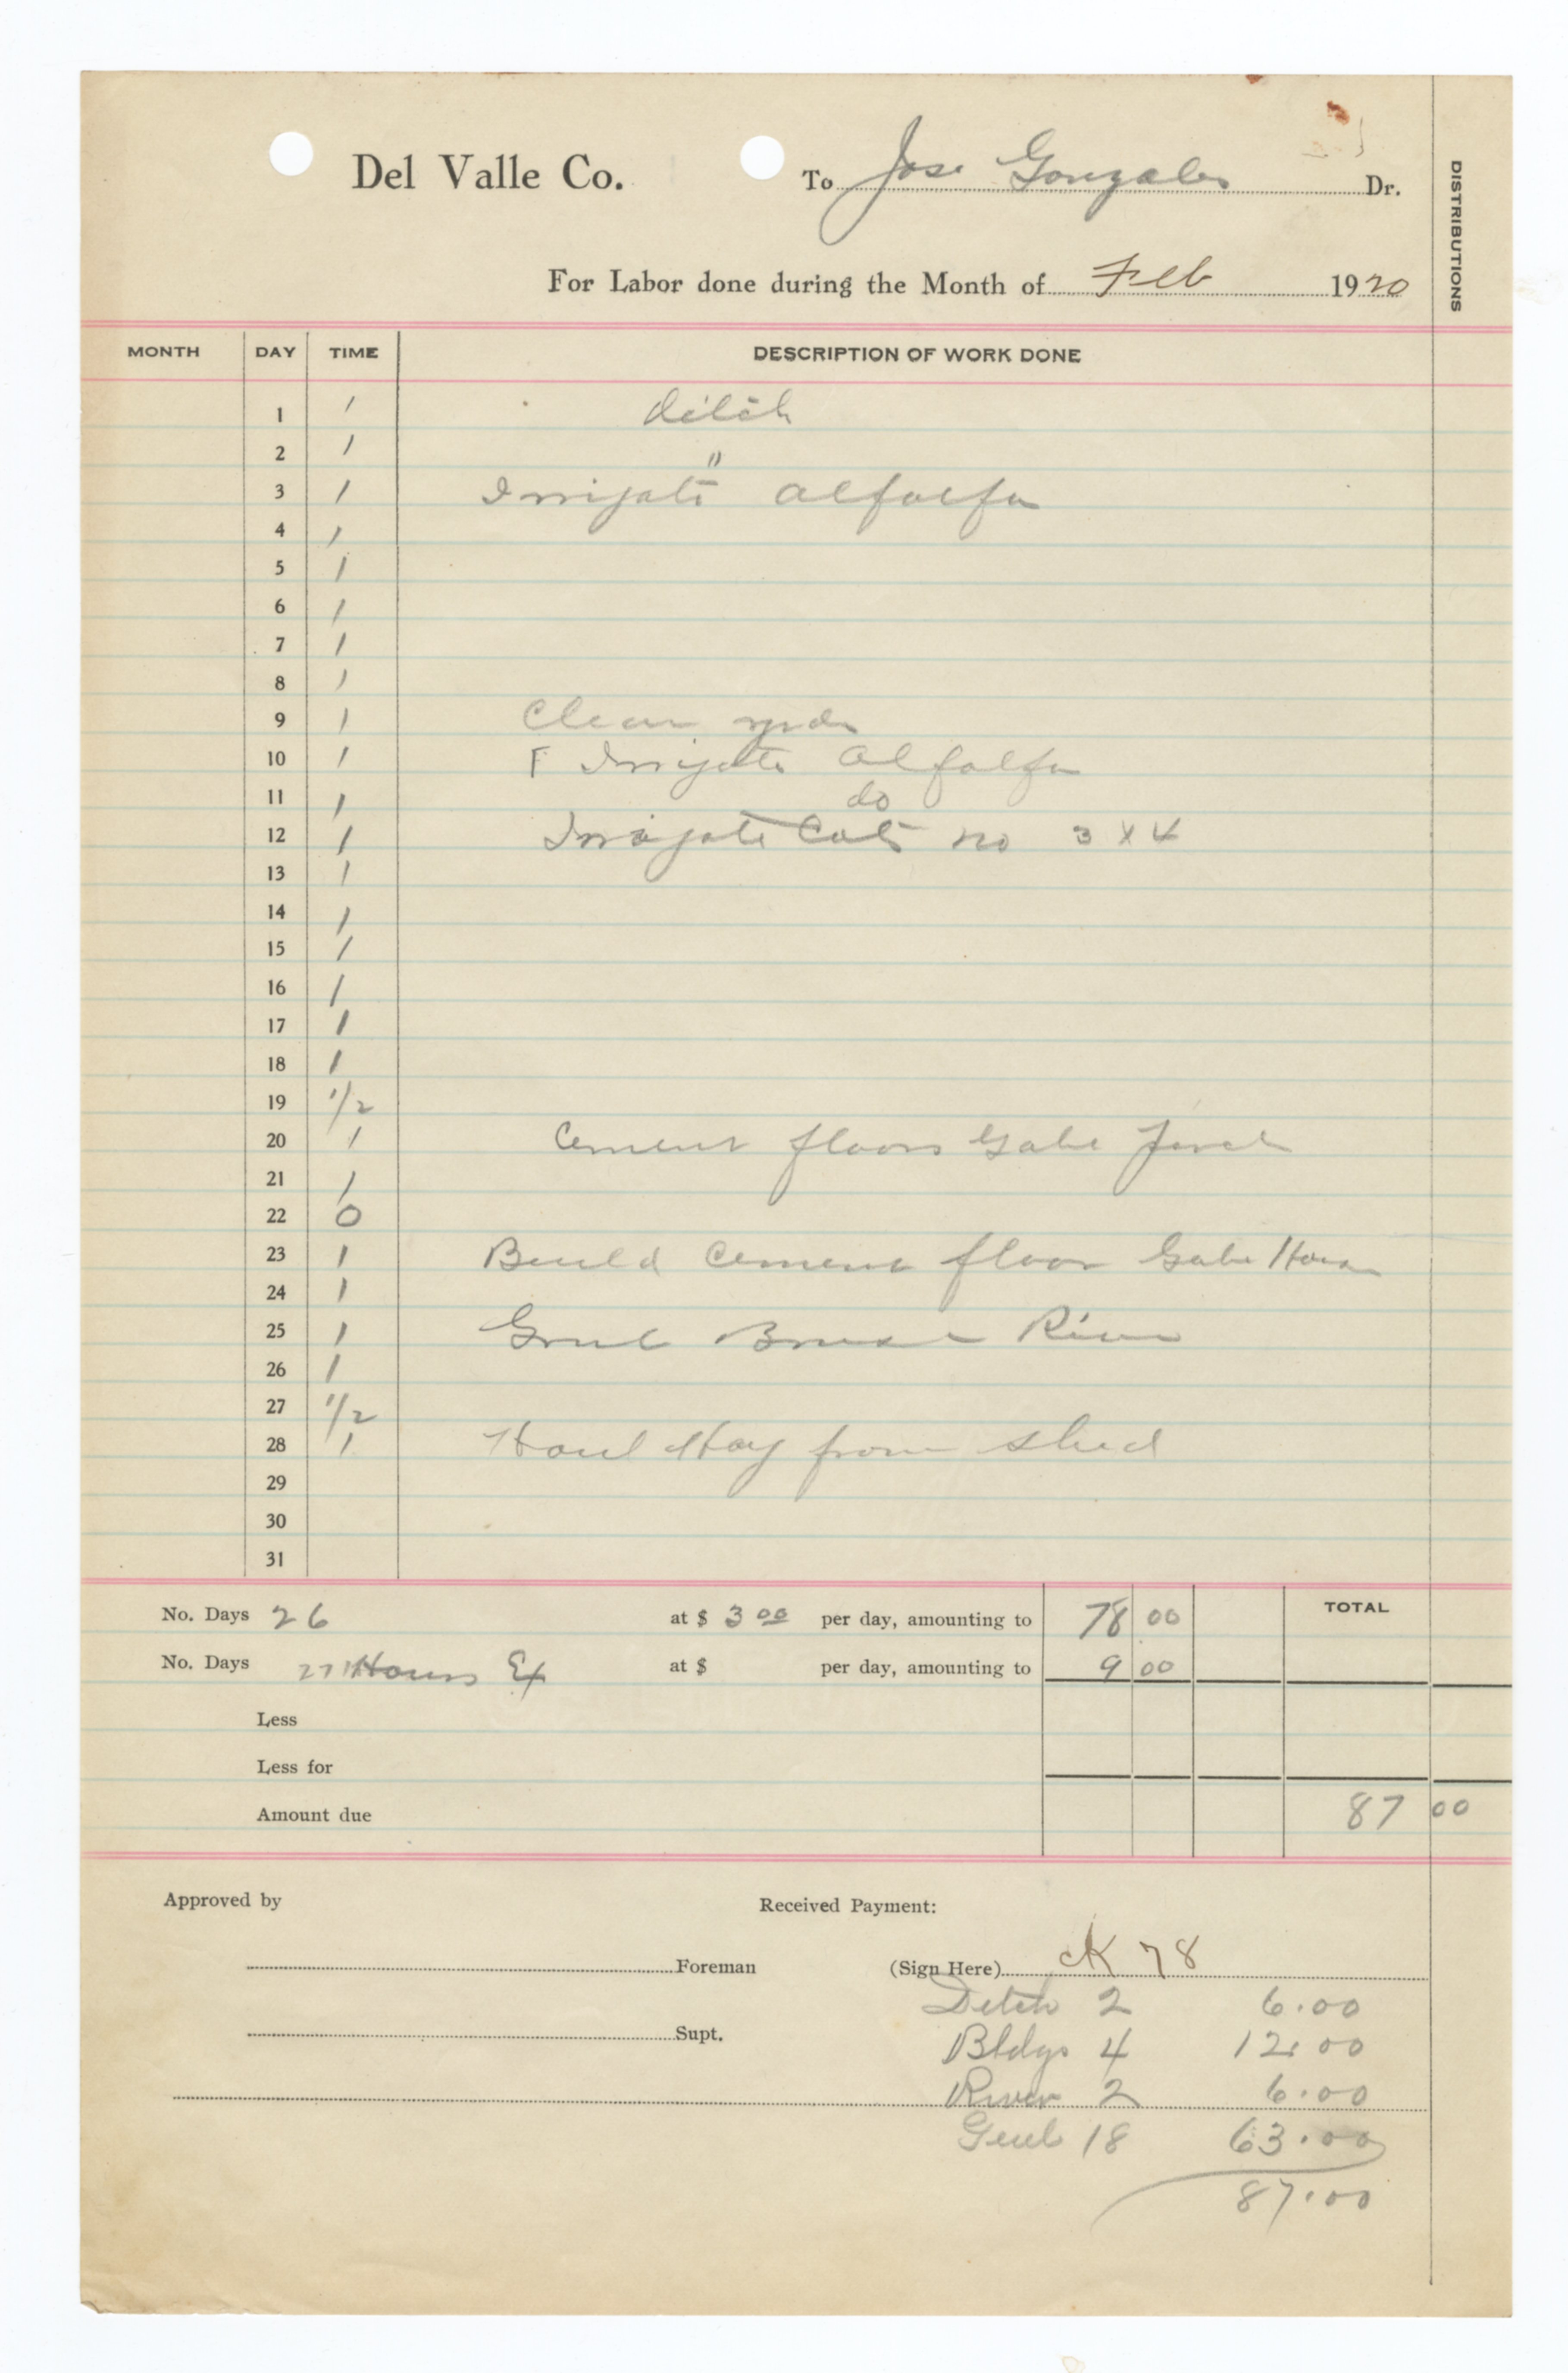 Del Valle Co. To Jose Gonzales Dr.
DISTRIBUTIONS
For Labor done during the Month of Feb 1920
MONTH DAY TIME DESCRIPTION OF WORK DONE
1 1 ditch
2 1 "
3 1 Irrigate alfalfa
4 1
5 1
6 1
7 1
8 1
9 1 Clean
10 1 Irrigate alfalfa
11 1 do
12 1 Irrigate no 3 x 4
13 1
14 1
15 1
16 1
17 1
18 1
19 1/2
20 1 Cement floors Gabe
21 1
22 0
23 1 Build Cement floor Gabe House
24 1
25 1 Grub Brush River
26 1
27 1/2
28 1 Haul Hay from shed
29
30
31
No. Days 26 at $ 3 00 per day, amounting to 78 00 TOTAL
No. Days 27 Hours Ex at $ per day, amounting to 9 00
Less
Less for
Amount due 87 00
Approved by Received Payment:
Foreman (Sign Here) CK 78
Ditch 2 6.00
Supt. Bldgs 4 12.00
River 2 6.00
Genl 18 63.00
87.00